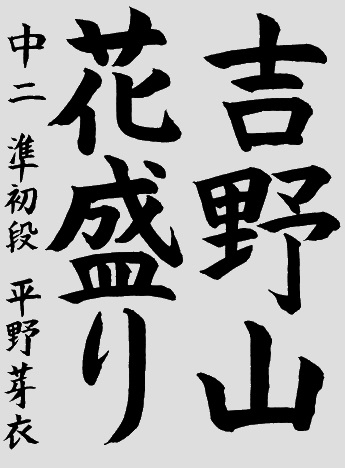 吉野山
花盛り
中二 準初段 平野芽衣